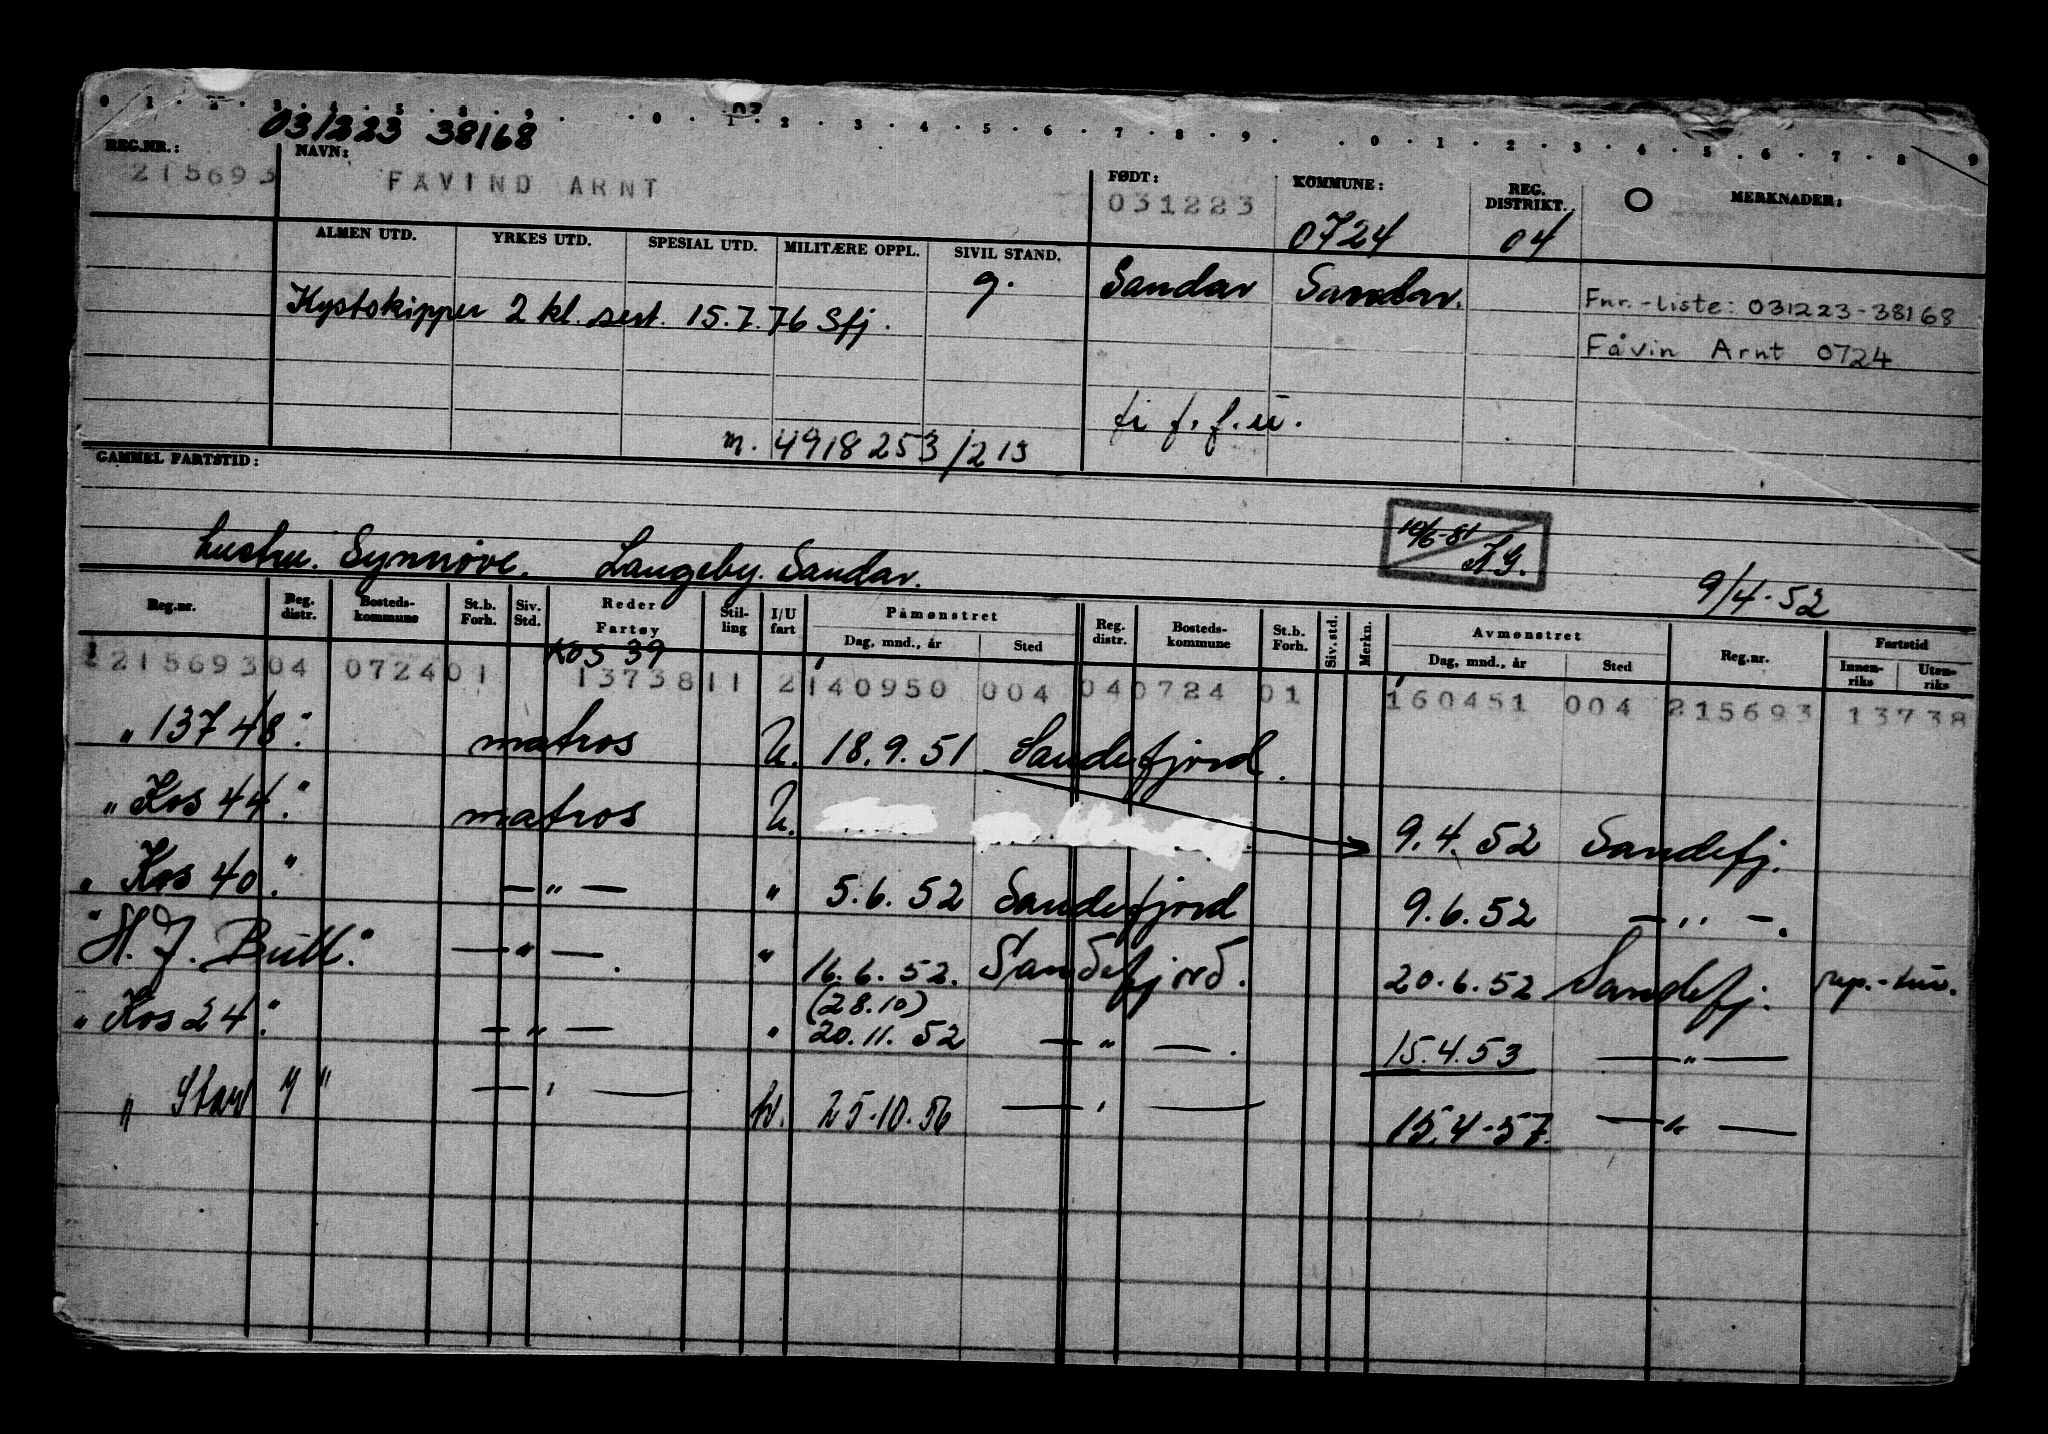 0 1 2 3 4 5 8 9 0 1 2 3 4 5 6 7 8 9 0 1 2 3 4 5 6 7 8 9
031223 38168
REG.NR.: NAVN: FØDT: KOMMUNE: REG. DISTRIKT. MERKNADER:
215693 FAVIND ARNT 031223 0724 04
ALMEN UTD. YRKES UTD. SPESIAL UTD. MILITÆRE OPPL. SIVIL STAND.
g. Sandar Sandar.
Kystskipper 2 kl. sert. 15.7.76 Sfj.
Fnr.-liste: 031223-38168
Fåvin Arnt 0724
fi f. f. u.
m. 4918253/213
GAMMEL FARTSTID:
10/6-81 A.G.
hustru. Synnøve. Langeby. Sandar.
9/4-52
Reg.nr. Reg. distr. Bosteds-kommune St.b. Forh. Siv. Std. Reder Fartøy Stil-ling I/U fart Påmønstret Dag, mnd., år Sted Reg. distr. Bosteds-kommune St.b. Forh. Siv. std. Merkn. Avmønstret Dag, mnd., år Sted Reg.nr. Fartstid Innen-riks Uten-riks
KOS 39
215693 04 0724 01 13738 11 2 140950 004 04 0724 01 160451 004 215693 13738
" 13748." matros U. 18.9.51 Sandefjord.
" Kos 44." matros U. 9.4.52 Sandefj.
" Kos 40." — " — " 5.6.52 Sandefjord 9.6.52 — " —.
" H. J. Bull." — " —. " 16.6.52. Sandefjord. 20.6.52 Sandefj. rep.-tur.
(28.10)
" Kos 24." — " — " 20.11.52 — " —. 15.4.53 — " —
" Star " — " — 25.10.56 — " — 15.4-57. — " —